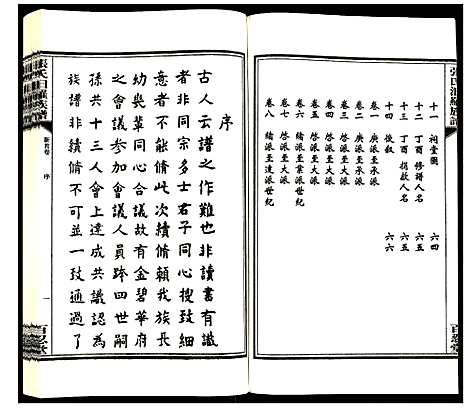 張氏汨羅族譜
十一 祠堂圖 六四
十二 丁酉修譜人名 六五
十三 丁酉捐款人名 六五
十四 後敘 六六
卷一 庚派至承派
卷二 庚派至承派
卷三 啓派至大卷
卷四 啓派大卷
卷五 啓派大卷
卷六 啓派大卷
卷七 緒派至業派世紀
卷八 緒派至達派世紀
百忍堂
序
古人云譜之作難也非讀書有識
者非同宗多士右子同心搜致細
意者不能脩此次續脩賴我族長
幼與輩同心合議故有金碧華府
之會議參加會議人員跨四世嗣
孫共十三人會上達成共識認為
族譜非續脩不可並一致通過了
張氏汨羅族譜
卷首卷 序 一
百忍堂